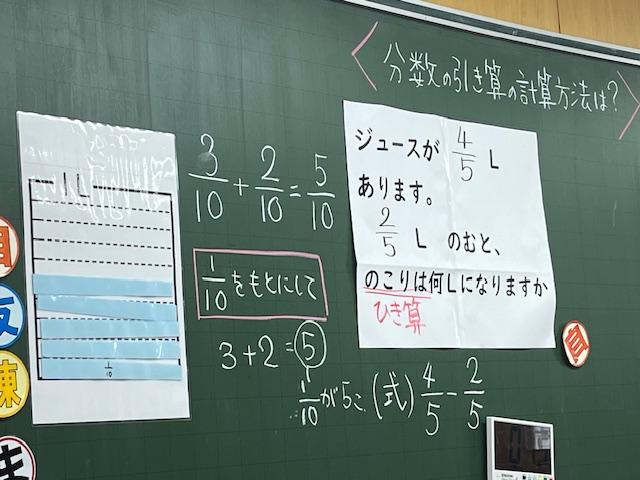 <分数の引き算の計算方法は?>
1L
1/10
3/10+2/10=5/10
1/10をもとにして
3+2=5
1/10が5こ
ジュースが4/5 L
あります。
2/5 L のむと、
のこりは何Lになりますか
ひき算
(式) 4/5-2/5